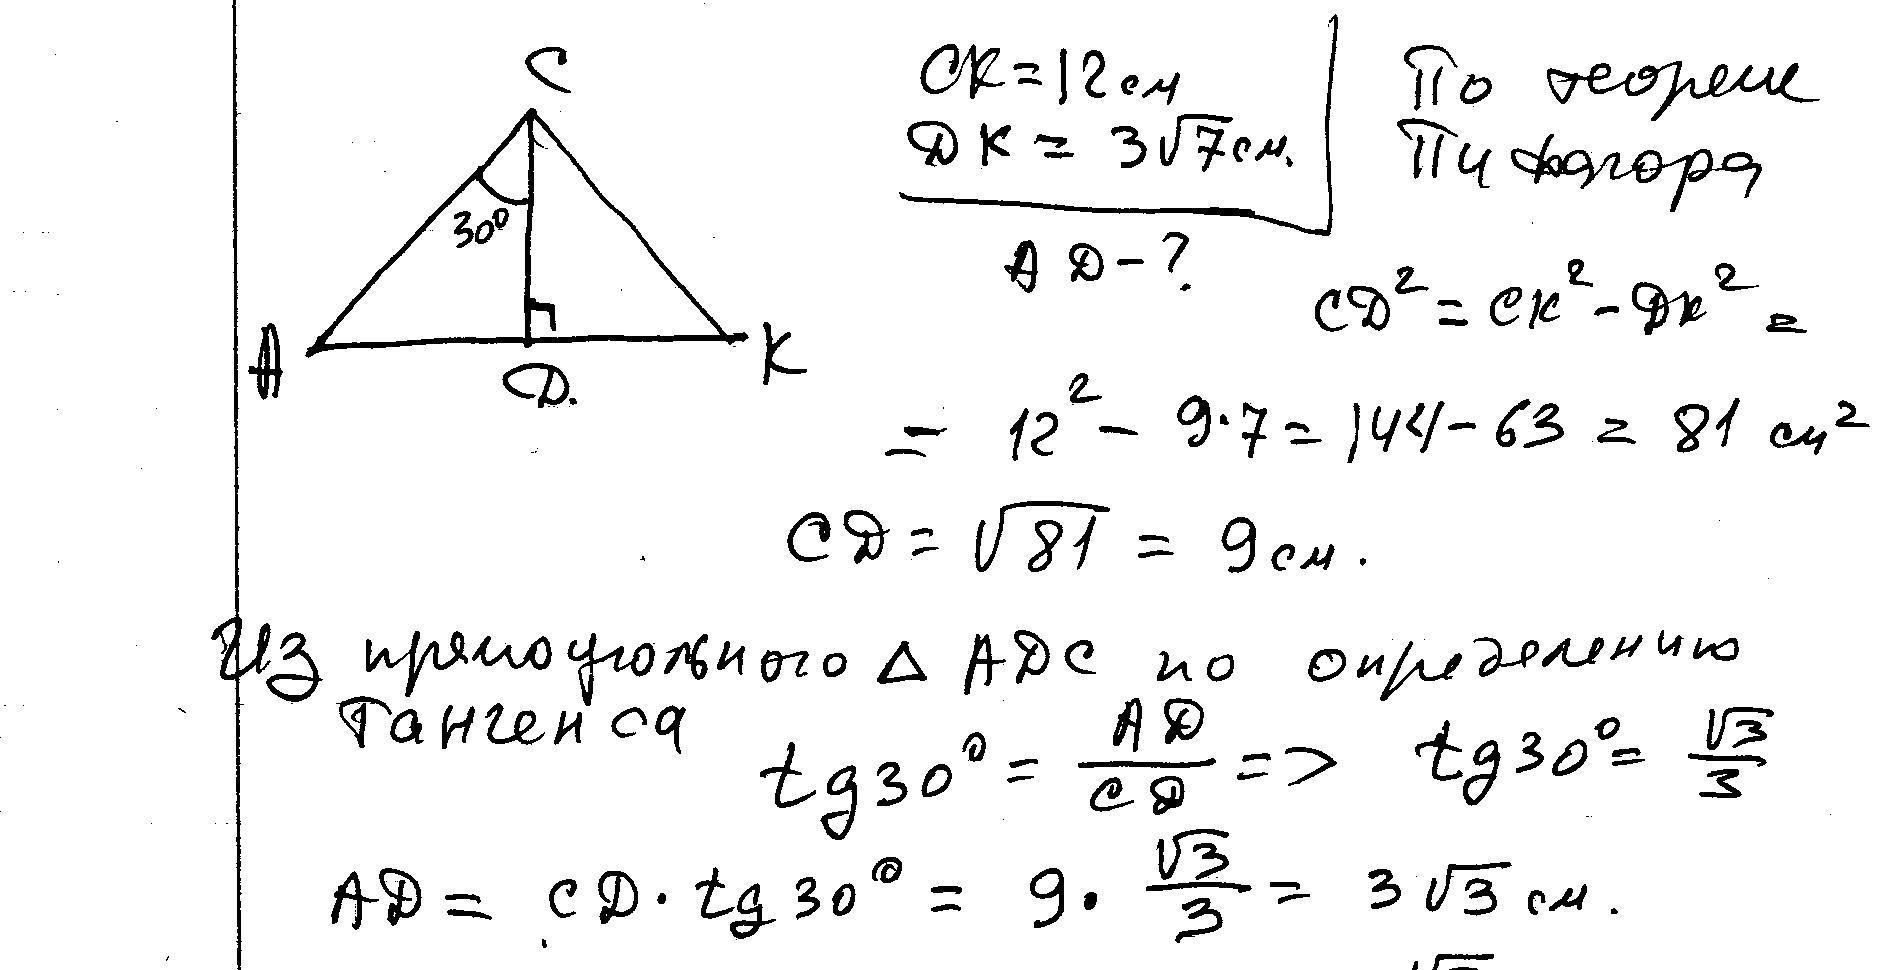 C
CK = 12 см
ДК = 3√7 см.
AD - ?
По теореме
Пифагора
30°
A
D.
K
CD² = CK² - DK² =
= 12² - 9·7 = 144 - 63 = 81 см²
CD = √81 = 9 см.
Из прямоугольного △ ADC по определению
тангенса
tg 30° = AD/CD => tg 30° = √3/3
AD = CD · tg 30° = 9 · √3/3 = 3√3 см.